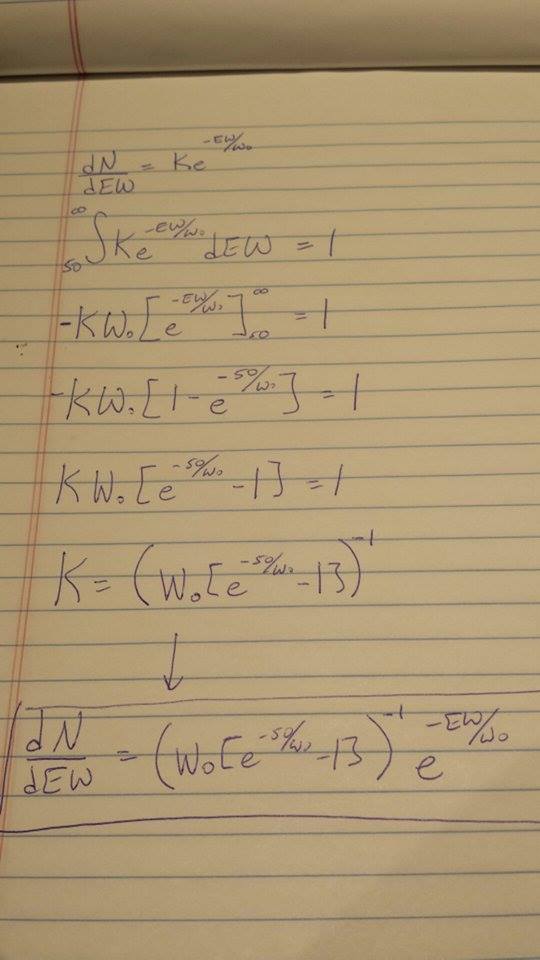 dN/dEW = Ke^(-EW/W₀)
₅₀∫^∞ Ke^(-EW/W₀) dEW = 1
-KW₀[e^(-EW/W₀)]₅₀^∞ = 1
-KW₀[1-e^(-50/W₀)] = 1
KW₀[e^(-50/W₀) -1] = 1
K = (W₀[e^(-50/W₀) -1])^-1
↓
dN/dEW = (W₀[e^(-50/W₀) -1])^-1 e^(-EW/W₀)